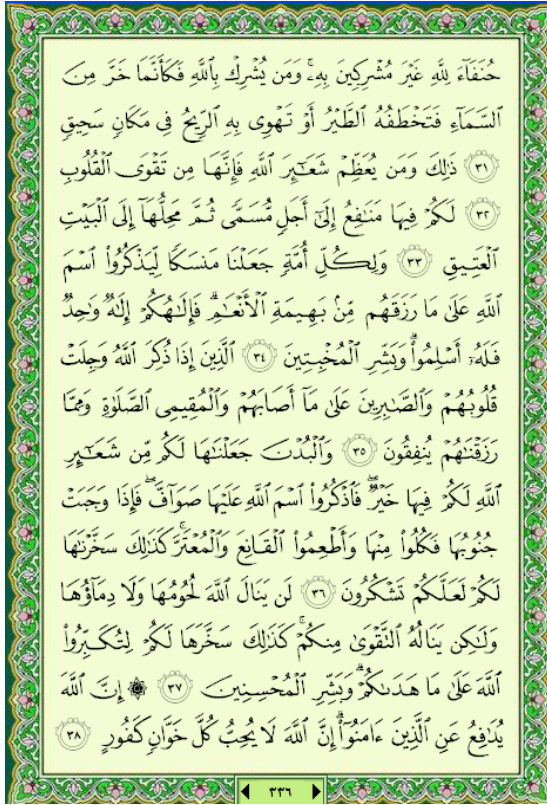 حُنَفَآءَ لِلَّهِ غَيْرَ مُشْرِكِينَ بِهِۦۚ وَمَن يُشْرِكْ بِٱللَّهِ فَكَأَنَّمَا خَرَّ مِنَ
ٱلسَّمَآءِ فَتَخْطَفُهُ ٱلطَّيْرُ أَوْ تَهْوِى بِهِ ٱلرِّيحُ فِى مَكَانٍ سَحِيقٍ
٣١ ذَٰلِكَ وَمَن يُعَظِّمْ شَعَـٰٓئِرَ ٱللَّهِ فَإِنَّهَا مِن تَقْوَى ٱلْقُلُوبِ
٣٢ لَكُمْ فِيهَا مَنَـٰفِعُ إِلَىٰٓ أَجَلٍ مُّسَمًّى ثُمَّ مَحِلُّهَآ إِلَى ٱلْبَيْتِ
ٱلْعَتِيقِ ٣٣ وَلِكُلِّ أُمَّةٍ جَعَلْنَا مَنسَكًا لِّيَذْكُرُوا۟ ٱسْمَ
ٱللَّهِ عَلَىٰ مَا رَزَقَهُم مِّنۢ بَهِيمَةِ ٱلْأَنْعَـٰمِۗ فَإِلَـٰهُكُمْ إِلَـٰهٌ وَٰحِدٌ
فَلَهُۥٓ أَسْلِمُوا۟ۗ وَبَشِّرِ ٱلْمُخْبِتِينَ ٣٤ ٱلَّذِينَ إِذَا ذُكِرَ ٱللَّهُ وَجِلَتْ
قُلُوبُهُمْ وَٱلصَّـٰبِرِينَ عَلَىٰ مَآ أَصَابَهُمْ وَٱلْمُقِيمِى ٱلصَّلَوٰةِ وَمِمَّا
رَزَقْنَـٰهُمْ يُنفِقُونَ ٣٥ وَٱلْبُدْنَ جَعَلْنَـٰهَا لَكُم مِّن شَعَـٰٓئِرِ
ٱللَّهِ لَكُمْ فِيهَا خَيْرٌۖ فَٱذْكُرُوا۟ ٱسْمَ ٱللَّهِ عَلَيْهَا صَوَآفَّۖ فَإِذَا وَجَبَتْ
جُنُوبُهَا فَكُلُوا۟ مِنْهَا وَأَطْعِمُوا۟ ٱلْقَانِعَ وَٱلْمُعْتَرَّۚ كَذَٰلِكَ سَخَّرْنَـٰهَا
لَكُمْ لَعَلَّكُمْ تَشْكُرُونَ ٣٦ لَن يَنَالَ ٱللَّهَ لُحُومُهَا وَلَا دِمَآؤُهَا
وَلَـٰكِن يَنَالُهُ ٱلتَّقْوَىٰ مِنكُمْۚ كَذَٰلِكَ سَخَّرَهَا لَكُمْ لِتُكَبِّرُوا۟
ٱللَّهَ عَلَىٰ مَا هَدَىٰكُمْۗ وَبَشِّرِ ٱلْمُحْسِنِينَ ٣٧ ۞ إِنَّ ٱللَّهَ
يُدَٰفِعُ عَنِ ٱلَّذِينَ ءَامَنُوٓا۟ۗ إِنَّ ٱللَّهَ لَا يُحِبُّ كُلَّ خَوَّانٍ كَفُورٍ ٣٨
٣٣٦